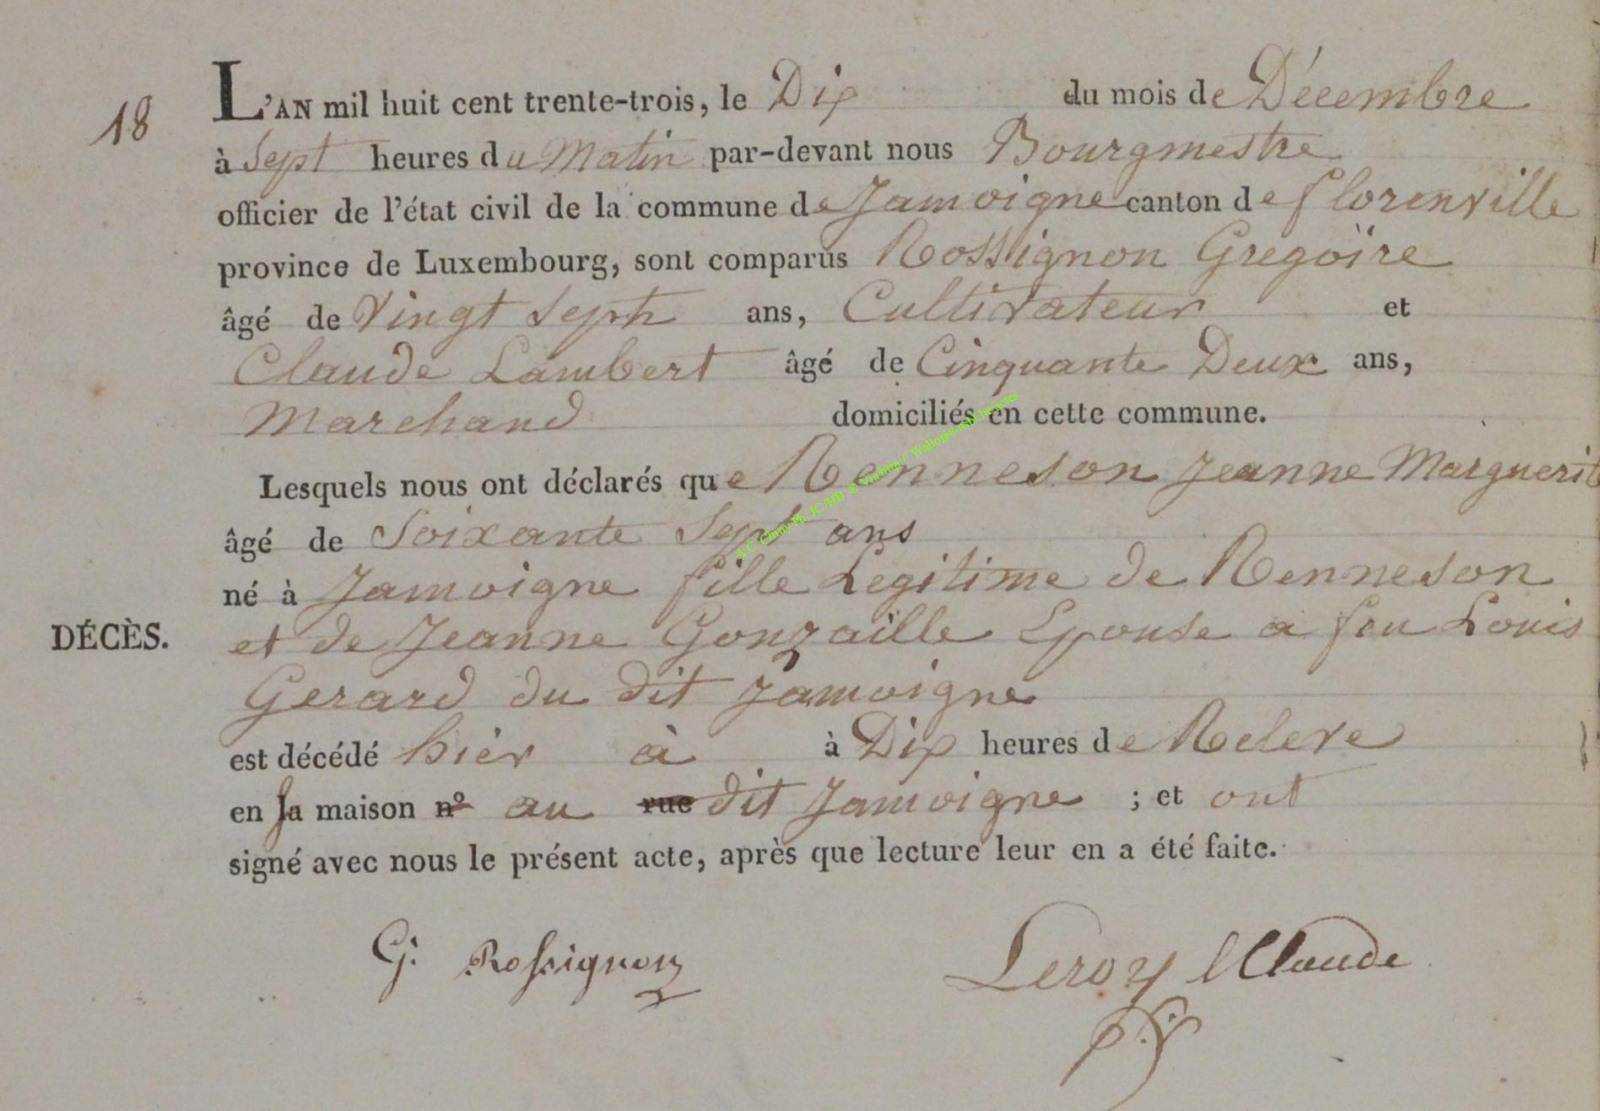 18
L'AN mil huit cent trente-trois, le Dix du mois de Décembre
à Sept heures du Matin par-devant nous Bourgmestre
officier de l'état civil de la commune de Jamoigne canton de florenville
province de Luxembourg, sont comparus Rossignon Gregöire
âgé de Vingt Sept ans, Cultivateur et
Claude Lambert âgé de Cinquante Deux ans,
Marchand domiciliés en cette commune.
Lesquels nous ont déclarés que Renneson Jeanne Marguerite
âgé de Soixante Sept ans
né à Jamoigne fille Legitime de Renneson
DÉCÈS. et de Jeanne Gonzaïlle Epouse a feu Louis
Gerard du dit Jamoigne
est décédé hier à à Dix heures de Releve
en sa maison n° au rue dit Jamoigne ; et ont
signé avec nous le présent acte, après que lecture leur en a été faite.
G. Rossignon Leroy l Claude